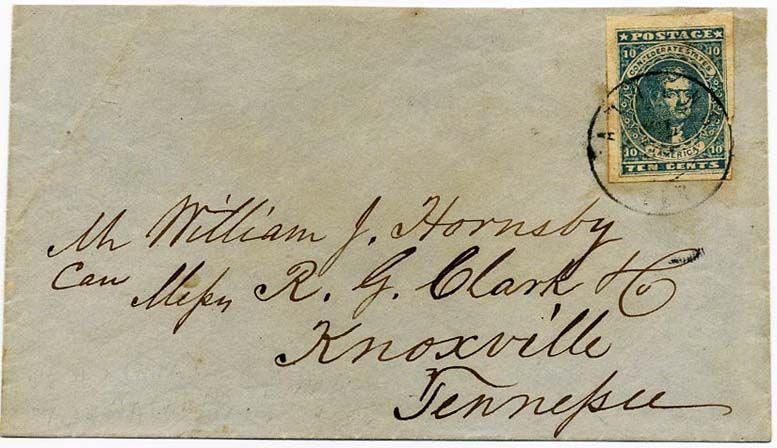 ★ POSTAGE ★
10 CONFEDERATE STATES 10
10 OF AMERICA 10
TEN CENTS
Mr William J. Hornsby
Care Messrs R. G. Clark & Co
Knoxville
Tennessee